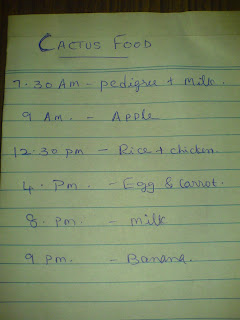 CACTUS FOOD
7.30 Am - pedigree + Milk.
9 Am. - Apple
12.30 pm - Rice + chicken.
4. Pm. - Egg & Carrot.
8. pm. - milk
9 pm. - Banana.